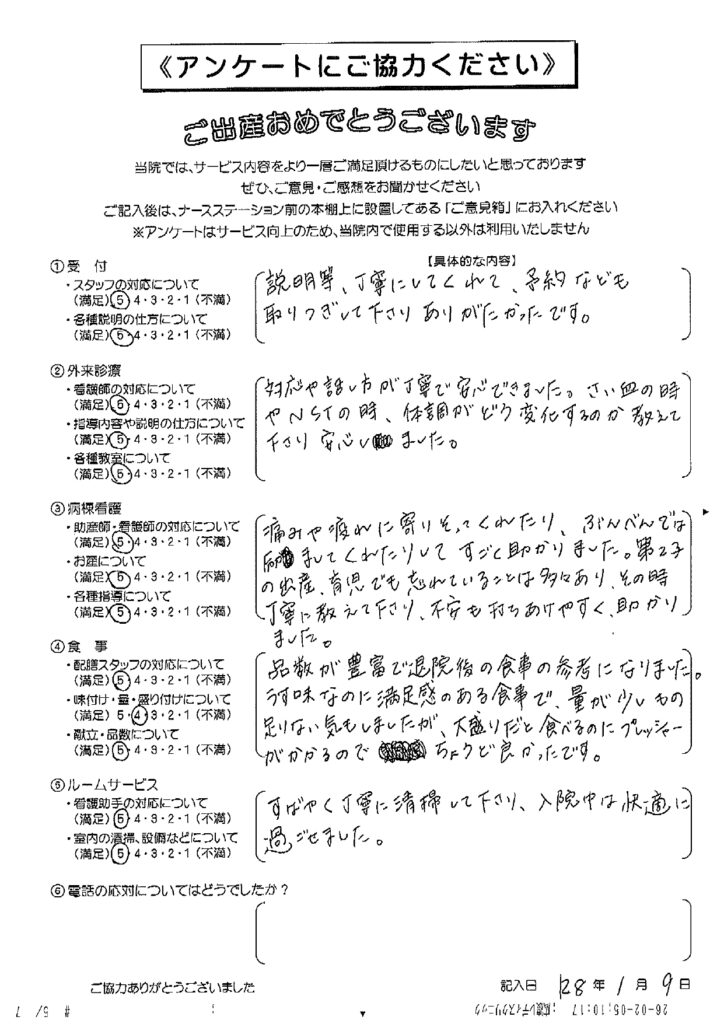 《アンケートにご協力ください》
ご出産おめでとうございます
当院では、サービス内容をより一層ご満足頂けるものにしたいと思っております
ぜひ、ご意見・ご感想をお聞かせください
ご記入後は、ナースステーション前の本棚上に設置してある「ご意見箱」にお入れください
※アンケートはサービス向上のため、当院内で使用する以外は利用いたしません
【具体的な内容】
①受　付
・スタッフの対応について
(満足)5・4・3・2・1(不満)
・各種説明の仕方について
(満足)5・4・3・2・1(不満)
説明等、丁寧にしてくれて、予約なども
取りつぎして下さりありがたかったです。
②外来診療
・看護師の対応について
(満足)5・4・3・2・1(不満)
・指導内容や説明の仕方について
(満足)5・4・3・2・1(不満)
・各種教室について
(満足)5・4・3・2・1(不満)
対応や話し方が丁寧で安心できました。さい血の時
やNSTの時、体調がどう変化するのか教えて
下さり安心しました。
③病棟看護
・助産師・看護師の対応について
(満足)5・4・3・2・1(不満)
・お産について
(満足)5・4・3・2・1(不満)
・各種指導について
(満足)5・4・3・2・1(不満)
痛みや疲れに寄りそってくれたり、ぶんべんでは
ましてくれたりしてすごく助かりました。第2子
の出産、育児でも忘れていることは多々あり、その時
丁寧に教えて下さり、不安も打ちあけやすく、助かり
ました。
④食　事
・配膳スタッフの対応について
(満足)5・4・3・2・1(不満)
・味付け・量・盛り付けについて
(満足)5・4・3・2・1(不満)
・献立・品数について
(満足)5・4・3・2・1(不満)
品数が豊富で退院後の食事の参考になりました。
うす味なのに満足感のある食事で、量が少しもの
足りない気もしましたが、大盛りだと食べるのにプレッシャー
がかかるのでちょうど良かったです。
⑤ルームサービス
・看護助手の対応について
(満足)5・4・3・2・1(不満)
・室内の清掃、設備などについて
(満足)5・4・3・2・1(不満)
すばやく丁寧に清掃して下さり、入院中は快適に
過ごせました。
⑥電話の応対についてはどうでしたか？
ご協力ありがとうございました
記入日 28年1月9日
26-02-05;10:17 ;レディスクリニック
# 5/ 7